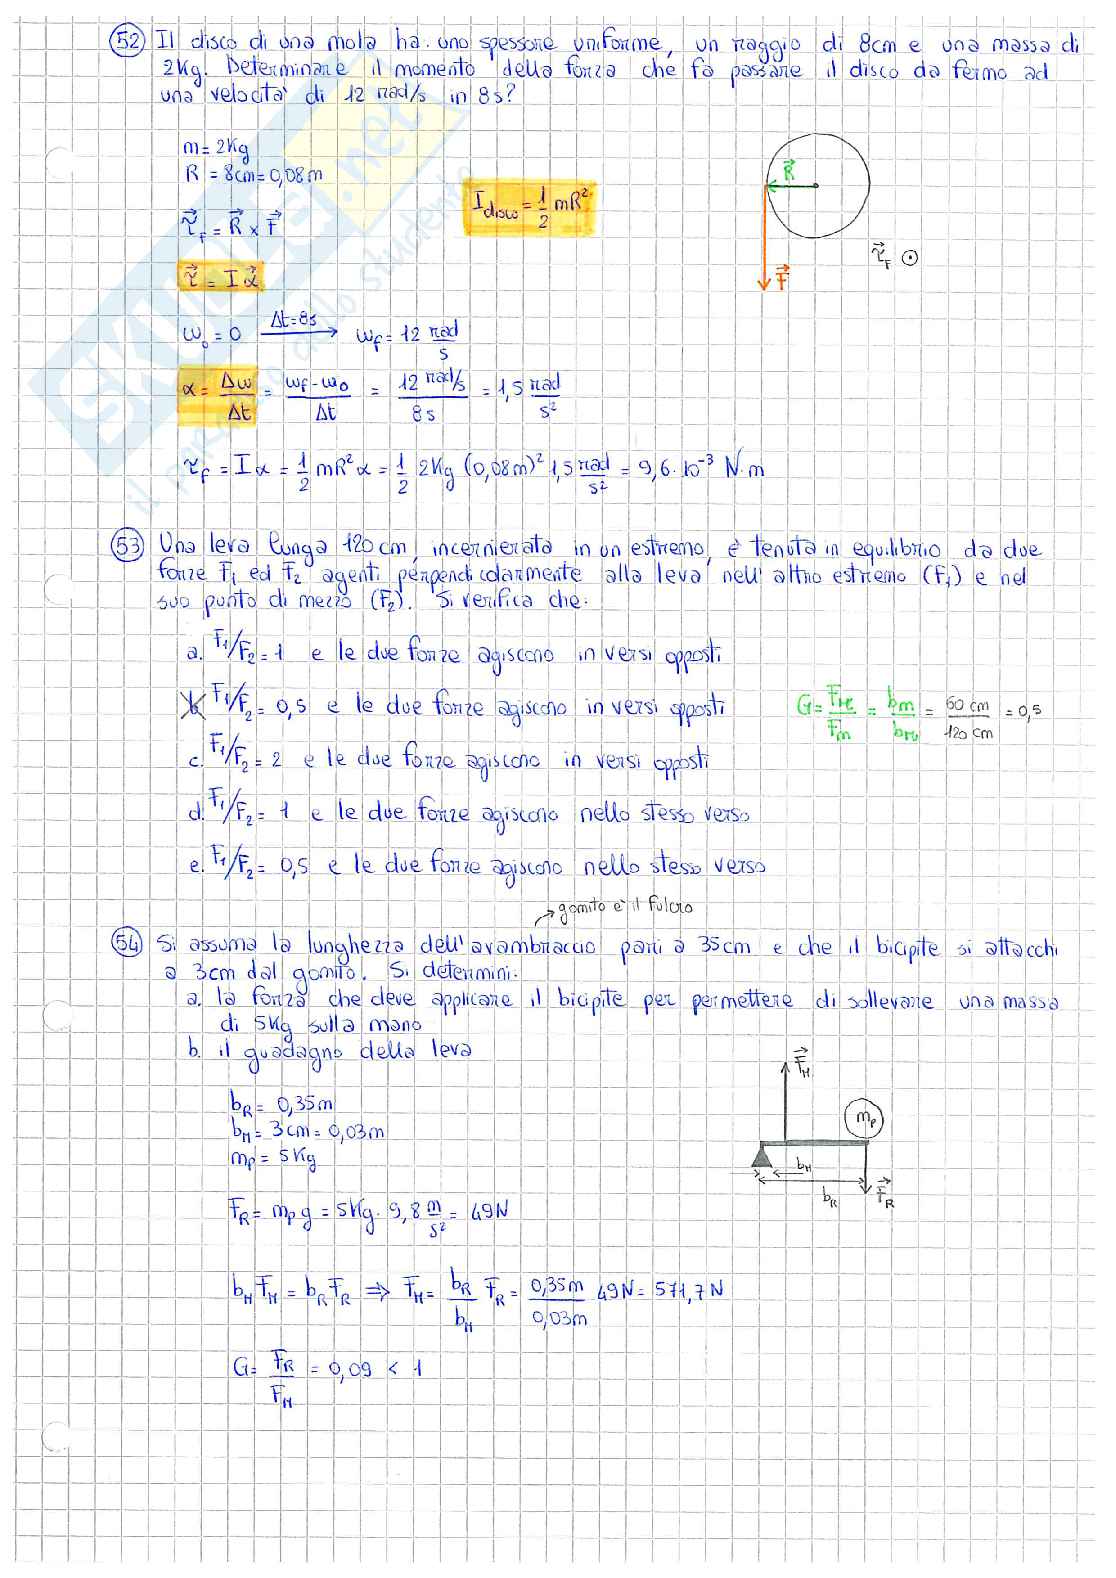 52 Il disco di una mola ha uno spessore uniforme, un raggio di 8cm e una massa di
2Kg. Determinare il momento della forza che fa passare il disco da fermo ad
una velocità di 12 rad/s in 8s?
m = 2Kg
R = 8cm = 0,08m
I disco = 1/2 mR²
R⃗
τ⃗_F = R⃗ × F⃗
τ⃗_F ⊙
F⃗
τ⃗ = I α⃗
ω₀ = 0 Δt=8s → ω_f = 12 rad/s
α = Δω/Δt = (ω_f - ω₀)/Δt = (12 rad/s)/(8s) = 1,5 rad/s²
τ_F = I α = 1/2 mR² α = 1/2 2Kg (0,08m)² 1,5 rad/s² = 9,6 · 10⁻³ N·m
53 Una leva lunga 120cm, incernierata in un estremo, è tenuta in equilibrio da due
forze F₁ ed F₂ agenti perpendicolarmente alla leva nell'altro estremo (F₁) e nel
suo punto di mezzo (F₂). Si verifica che:
a. F₁/F₂ = 1 e le due forze agiscono in versi opposti
b. F₁/F₂ = 0,5 e le due forze agiscono in versi opposti
G = F_R/F_m = b_m/b_R = 60 cm/120 cm = 0,5
c. F₁/F₂ = 2 e le due forze agiscono in versi opposti
d. F₁/F₂ = 1 e le due forze agiscono nello stesso verso
e. F₁/F₂ = 0,5 e le due forze agiscono nello stesso verso
→ gomito è il fulcro
54 Si assuma la lunghezza dell'avambraccio pari a 35cm e che il bicipite si attacchi
a 3cm dal gomito. Si determini:
a. la forza che deve applicare il bicipite per permettere di sollevare una massa
di 5Kg sulla mano
b. il guadagno della leva
F⃗_M
m_p
b_M
b_R
F⃗_R
b_R = 0,35m
b_M = 3cm = 0,03m
m_p = 5Kg
F_R = m_p g = 5Kg · 9,8 m/s² = 49N
b_M F_M = b_R F_R ⇒ F_M = b_R/b_M F_R = 0,35m/0,03m 49N = 571,7 N
G = F_R/F_M = 0,09 < 1
SKUOLA.net
il paradiso dello studente